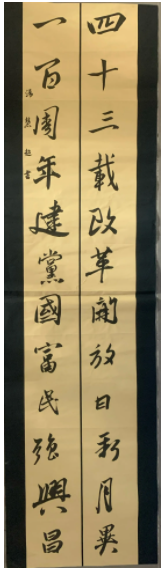 四十三載改革開放日新月異
一百周年建黨國富民強興昌